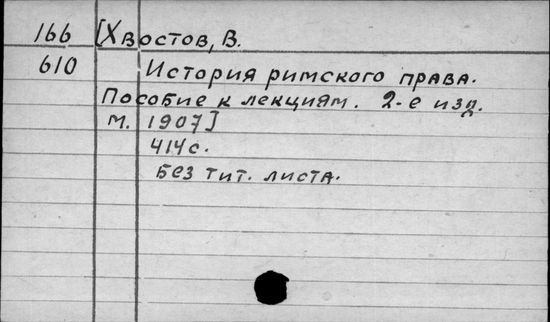 166 [Хвостов, В.
610 История римского права.
Пособие к лекциям. 2-е изд.
М. 1907]
414 с.
Без тит. листа.